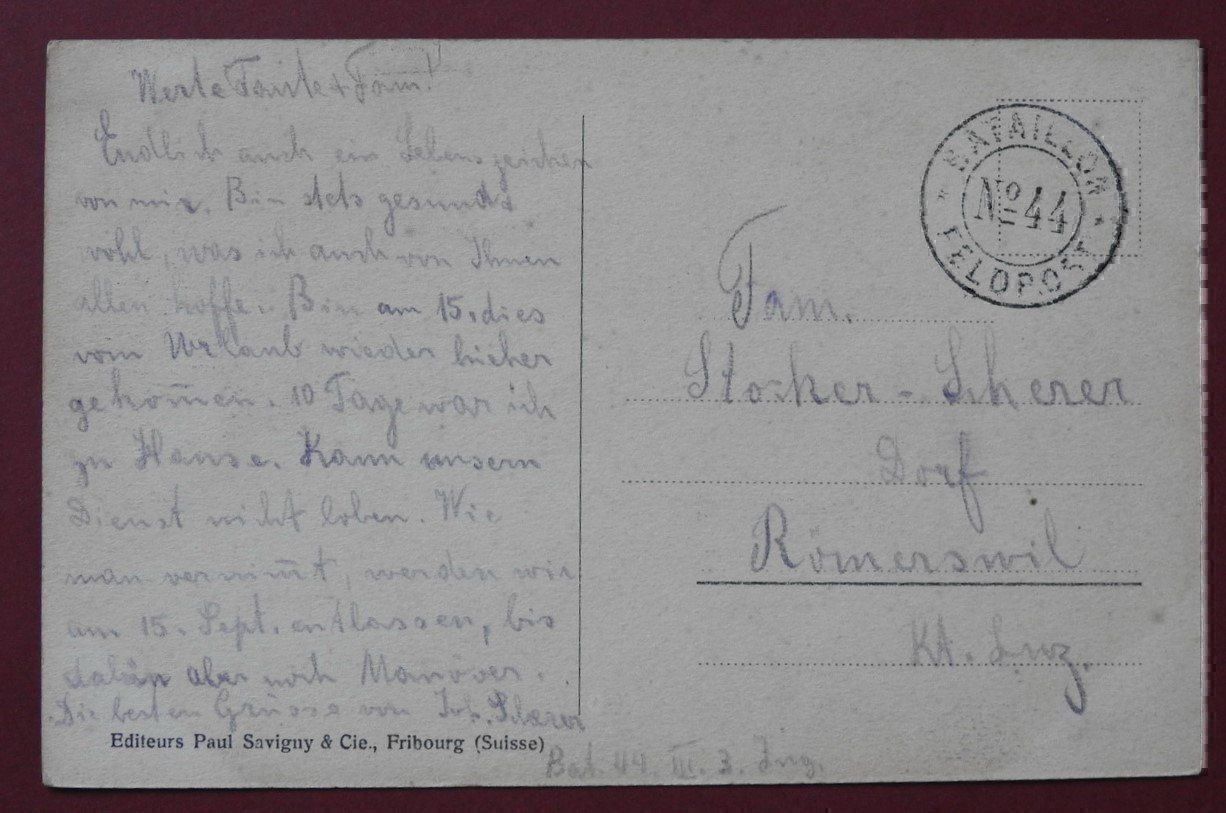 Werte Tante + Fam!
Endlich auch ein Lebenszeichen
von mir. Bin stets gesund &
wohl, was ich auch von Ihnen
allen hoffe. Bin am 15. dies
vom Urlaub wieder hieher
gekom̅en. 10 Tage war ich
zu Hause. Kann unsern
Dienst nicht loben. Wie
man vernim̅t, werden wir
am 15. Sept. entlassen, bis
dahin aber noch Manöver.
Die besten Grüsse von Jos. Scherer
Editeurs Paul Savigny & Cie., Fribourg (Suisse)
Bat. 44. III. 3.
BATAILLON
No. 44
FELDPOST
Fam.
Stocker - Scherer
Dorf
Römerswil
Kt. Luz.